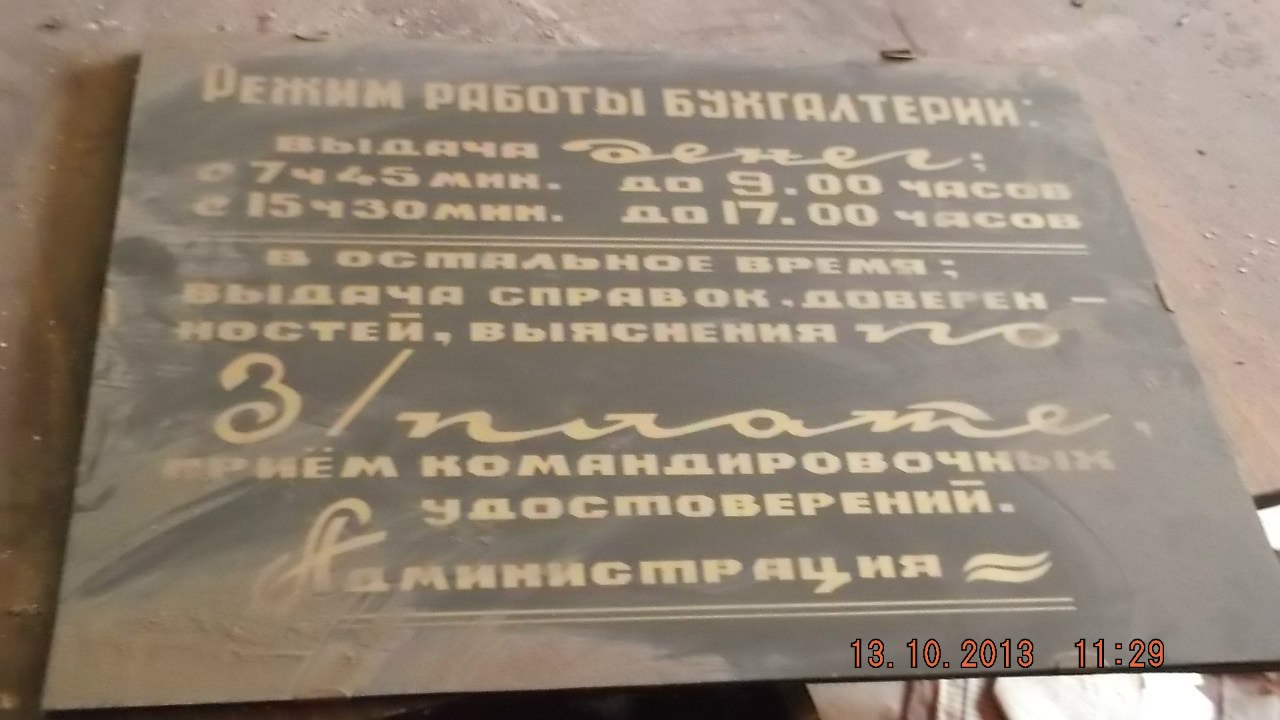 Режим работы бухгалтерии:
выдача денег;
с 7ч45мин. до 9.00 часов
с 15ч30мин. до 17.00 часов
в остальное время;
выдача справок, доверен –
ностей, выяснения по
З/плате,
приём командировочных
удостоверений.
Администрация
13.10.2013 11:29